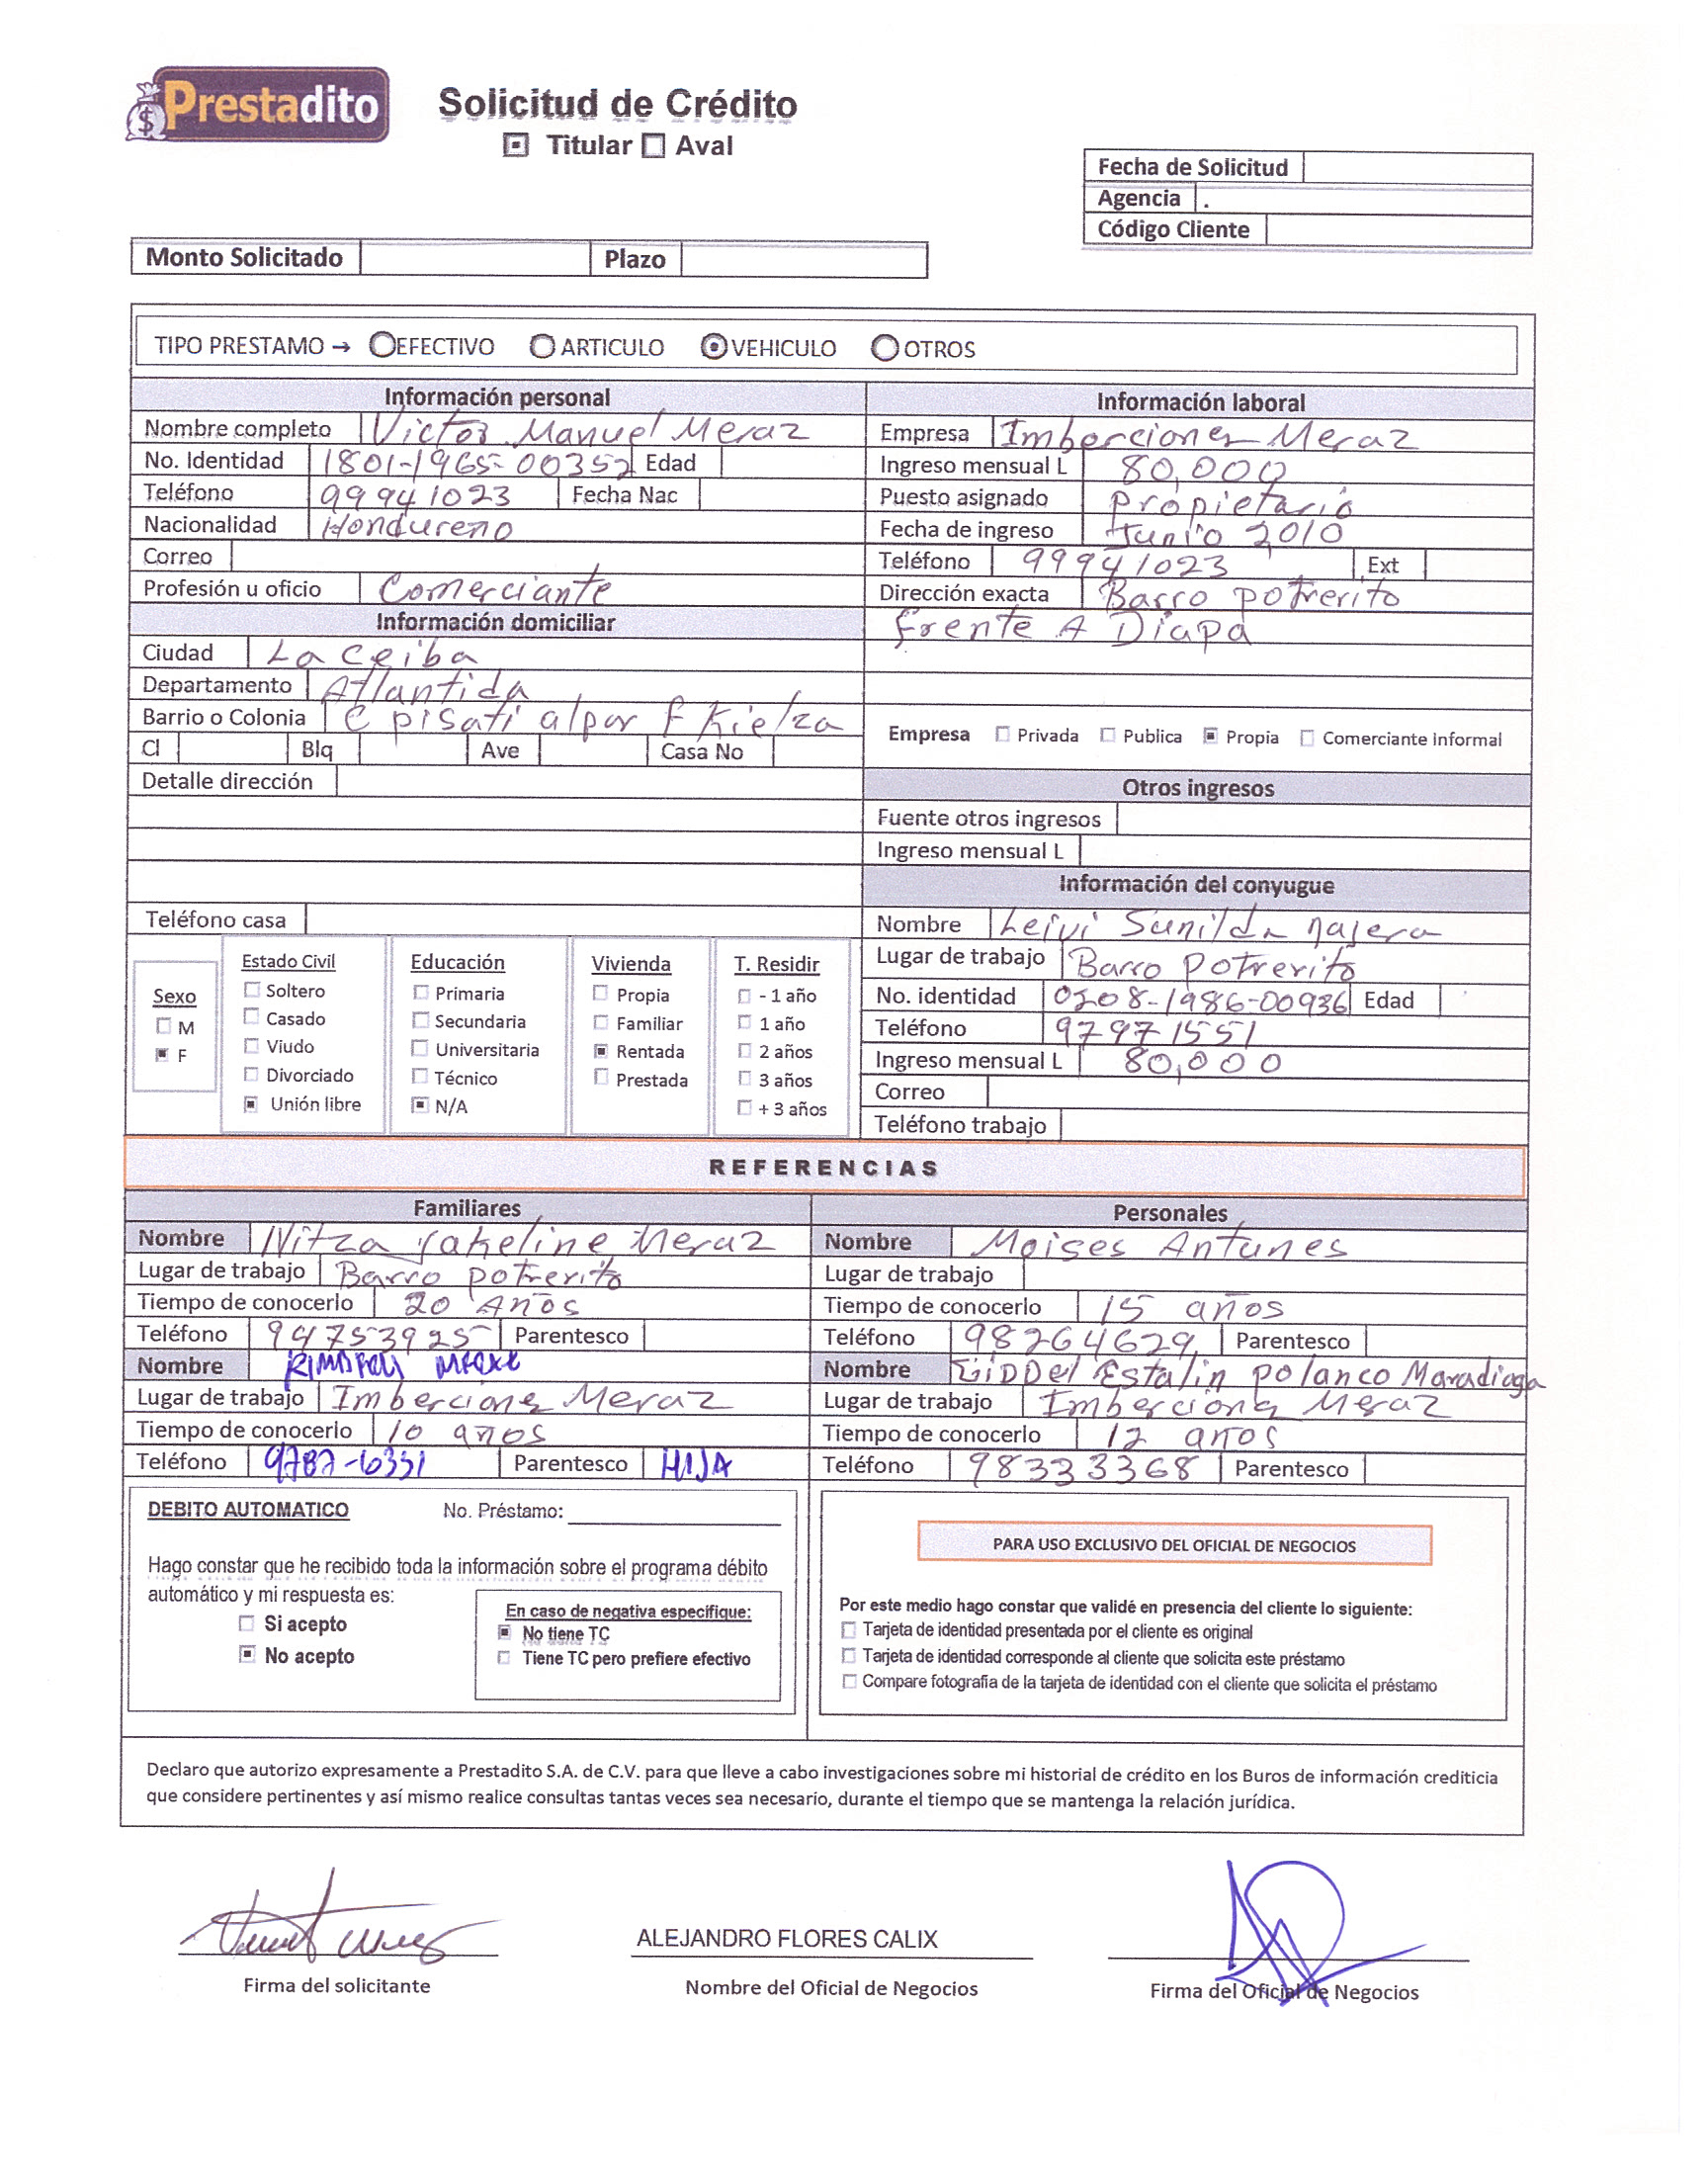 Prestadito
Solicitud de Crédito
Titular Aval
Fecha de Solicitud
Agencia .
Código Cliente
Monto Solicitado Plazo
TIPO PRESTAMO → EFECTIVO ARTICULO VEHICULO OTROS
Información personal
Nombre completo Victor Manuel Meraz
No. Identidad 1801-1965-00352 Edad
Teléfono 99941023 Fecha Nac
Nacionalidad Hondureno
Correo
Profesión u oficio Comerciante
Información domiciliar
Ciudad La ceiba
Departamento Atlantida
Barrio o Colonia pisati alpar f Kielsa
Cl Blq Ave Casa No
Detalle dirección
Teléfono casa
Sexo
M
F
Estado Civil
Soltero
Casado
Viudo
Divorciado
Unión libre
Educación
Primaria
Secundaria
Universitaria
Técnico
N/A
Vivienda
Propia
Familiar
Rentada
Prestada
T. Residir
- 1 año
1 año
2 años
3 años
+ 3 años
Información laboral
Empresa Imberciones Meraz
Ingreso mensual L 80,000
Puesto asignado propietario
Fecha de ingreso Junio 2010
Teléfono 99941023 Ext
Dirección exacta Barro potrerito
frente A Diapa
Empresa Privada Publica Propia Comerciante informal
Otros ingresos
Fuente otros ingresos
Ingreso mensual L
Información del conyugue
Nombre Leivi Sunilda najera
Lugar de trabajo Barro Potrerito
No. identidad 0208-1986-00936 Edad
Teléfono 97971551
Ingreso mensual L 80,000
Correo
Teléfono trabajo
REFERENCIAS
Familiares
Nombre Nitza yakeline Meraz
Lugar de trabajo Barro potrerito
Tiempo de conocerlo 20 Años
Teléfono 94753925 Parentesco
Nombre
Lugar de trabajo Imberciones Meraz
Tiempo de conocerlo 10 años
Teléfono 9787-6351 Parentesco HIJA
Personales
Nombre Moises Antunes
Lugar de trabajo
Tiempo de conocerlo 15 años
Teléfono 98264629 Parentesco
Nombre Estalin polanco Maradiaga
Lugar de trabajo Imberciones Meraz
Tiempo de conocerlo 12 años
Teléfono 98333368 Parentesco
DEBITO AUTOMATICO No. Préstamo:
Hago constar que he recibido toda la información sobre el programa débito
automático y mi respuesta es:
Si acepto
No acepto
En caso de negativa especifique:
No tiene TC
Tiene TC pero prefiere efectivo
PARA USO EXCLUSIVO DEL OFICIAL DE NEGOCIOS
Por este medio hago constar que validé en presencia del cliente lo siguiente:
Tarjeta de identidad presentada por el cliente es original
Tarjeta de identidad corresponde al cliente que solicita este préstamo
Compare fotografia de la tarjeta de identidad con el cliente que solicita el préstamo
Declaro que autorizo expresamente a Prestadito S.A. de C.V. para que lleve a cabo investigaciones sobre mi historial de crédito en los Buros de información crediticia
que considere pertinentes y así mismo realice consultas tantas veces sea necesario, durante el tiempo que se mantenga la relación jurídica.
ALEJANDRO FLORES CALIX
Firma del solicitante
Nombre del Oficial de Negocios
Firma del Oficial de Negocios